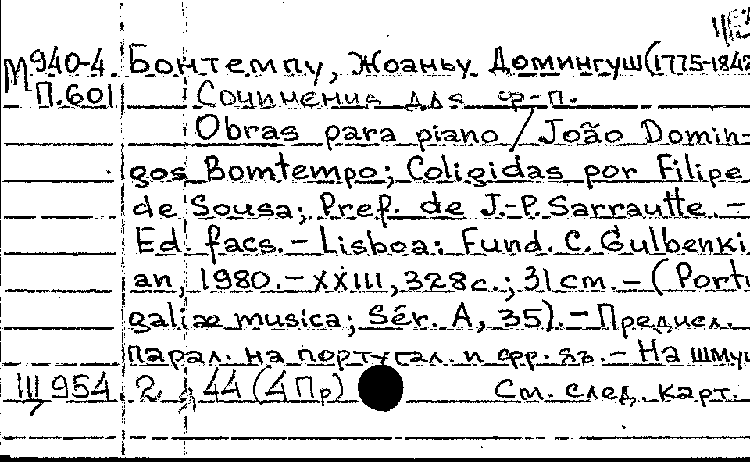 М940-4 Бонтемпу, Жоаньу Домингуш (1775-1842
П.601 Сочинения для ф-п.
Obras para piano / João Domin-
gos Bomtempo; Coligidas por Filipe
de Sousa; Pref. de J.-P. Sarrautte. –
Ed. facs. – Lisboa: Fund. C. Gulbenki
an, 1980. – XXIII, 328 с.; 31 cm. – (Portu
galiæ musica; Sér. A, 35). – Предисл.
парал. на португал. и фр. яз. – На шму
Ш 954 2 44 (4 Пр) См. след. карт.